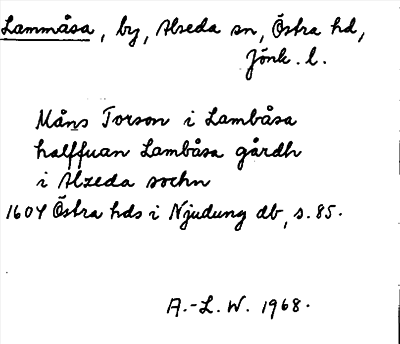 Lammåsa, by, Alseda sn, Östra hd,
Jönk. l.
Måns Torson i Lambåsa
halffuan Lambåsa gårdh
i Alzeda sochn
1604 Östra hds i Njudung db, s. 85.
A.-L. W. 1968.